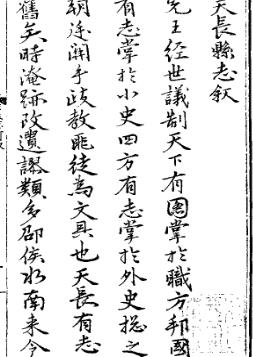 天長縣志叙
先王经世議制天下有圖掌於職方邦國
有志掌於小史四方有志掌於外史揔之
明逹関乎政教匪徒爲文具也天長有志
舊矣時淹跡改遺謬類多邵侯水南来令